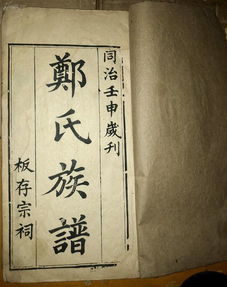 同治壬申歲刋
鄭氏族譜
板存宗祠